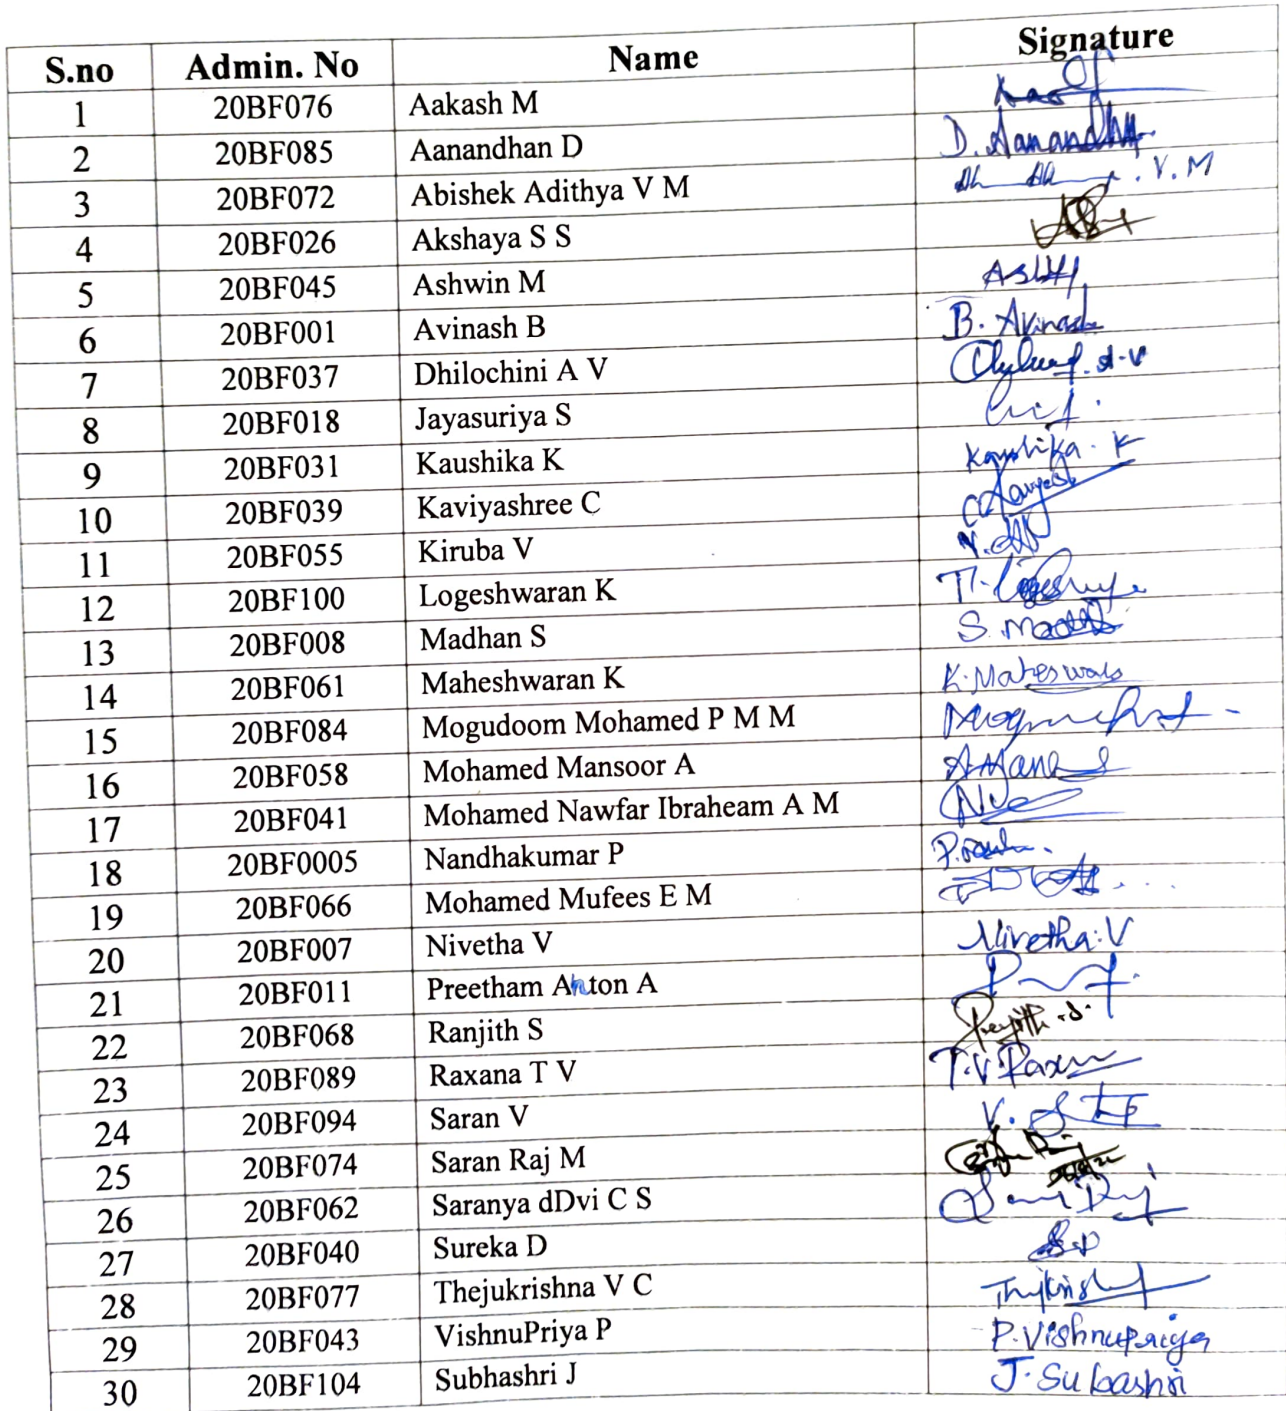 S.no Admin. No Name Signature
1 20BF076 Aakash M
2 20BF085 Aanandhan D D. Aanandhan
3 20BF072 Abishek Adithya V M V. M
4 20BF026 Akshaya S S
5 20BF045 Ashwin M
6 20BF001 Avinash B B. Avinash
7 20BF037 Dhilochini A V A.V
8 20BF018 Jayasuriya S
9 20BF031 Kaushika K Kaushika. K
10 20BF039 Kaviyashree C
11 20BF055 Kiruba V
12 20BF100 Logeshwaran K
13 20BF008 Madhan S S.
14 20BF061 Maheshwaran K K. Maheswaran
15 20BF084 Mogudoom Mohamed P M M
16 20BF058 Mohamed Mansoor A
17 20BF041 Mohamed Nawfar Ibraheam A M
18 20BF0005 Nandhakumar P
19 20BF066 Mohamed Mufees E M
20 20BF007 Nivetha V Nivetha. V
21 20BF011 Preetham Anton A
22 20BF068 Ranjith S
23 20BF089 Raxana T V T.V
24 20BF094 Saran V V.
25 20BF074 Saran Raj M
26 20BF062 Saranya dDvi C S
27 20BF040 Sureka D
28 20BF077 Thejukrishna V C
29 20BF043 VishnuPriya P P. Vishnupriya
30 20BF104 Subhashri J J. Subashri